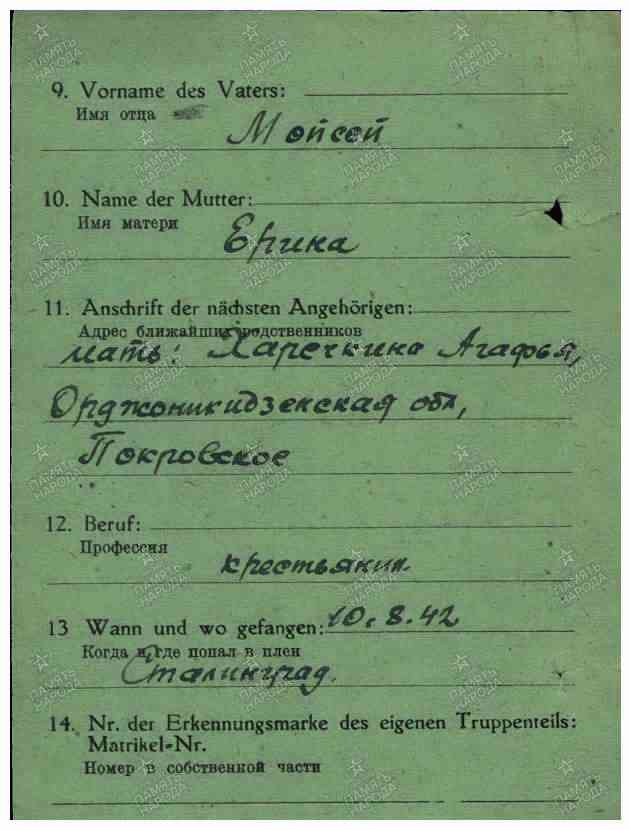 9. Vorname des Vaters:
Имя отца
Мойсей
10. Name der Mutter:
Имя матери
Ерина
11. Anschrift der nächsten Angehörigen:
Адрес ближайших родственников
мать: Харечкина Агафья,
Орджоникидзенская обл,
Покровское
12. Beruf:
Профессия
крестьянин.
13 Wann und wo gefangen: 10.8.42
Когда и где попал в плен
Сталинград.
14. Nr. der Erkennungsmarke des eigenen Truppenteils:
Matrikel-Nr.
Номер в собственной части
ПАМЯТЬ
НАРОДА